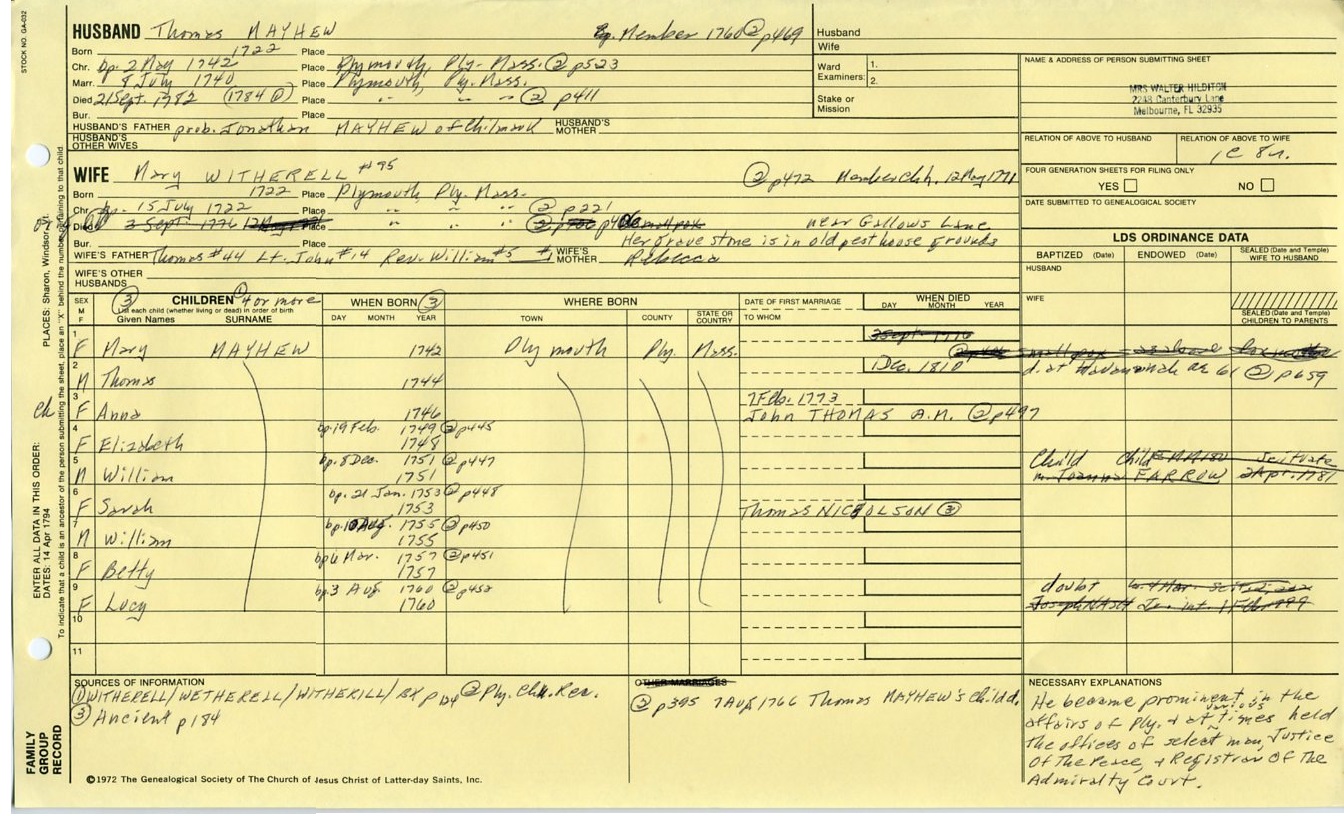 STOCK NO. GA-032
HUSBAND Thomas MAYHEW
Member 1760 ② p469
Born 1722 Place
Chr. bp. 2 May 1742 Place Plymouth, Ply. Mass. ② p523
Marr. 8 July 1740 Place Plymouth, Ply. Mass.
Died 21 Sept. 1782 (1784 ②) Place " " " ② p411
Bur. Place
HUSBAND'S FATHER prob. Jonathan MAYHEW of Chilmark HUSBAND'S MOTHER
HUSBAND'S OTHER WIVES
Husband
Wife
Ward Examiners: 1.
2.
Stake or Mission
NAME & ADDRESS OF PERSON SUBMITTING SHEET
MRS WALTER HILDITCH
2248 Canterbury Lane
Melbourne, FL 32935
RELATION OF ABOVE TO HUSBAND RELATION OF ABOVE TO WIFE
1C 8r.
FOUR GENERATION SHEETS FOR FILING ONLY
YES NO
DATE SUBMITTED TO GENEALOGICAL SOCIETY
WIFE Mary WITHERELL #95
② p472 Member Chh. 12 May 1771
Born 1722 Place Plymouth, Ply. Mass.
Chr. bp. 15 July 1722 Place " " " ② p221
Died 3 Sept 1776 Place " " " near Gallows Lane
Bur. Place Her grave stone is in old pest house grounds
WIFE'S FATHER Thomas #44 Lt. John #14 Rev. William #5 WIFE'S MOTHER Rebecca
WIFE'S OTHER HUSBANDS
LDS ORDINANCE DATA
BAPTIZED (Date) ENDOWED (Date) SEALED (Date and Temple) WIFE TO HUSBAND
HUSBAND
WIFE
SEALED (Date and Temple) CHILDREN TO PARENTS
SEX M F ③ CHILDREN ① 4 or more
List each child (whether living or dead) in order of birth
Given Names SURNAME
WHEN BORN ③
DAY MONTH YEAR
WHERE BORN
TOWN COUNTY STATE OR COUNTRY
DATE OF FIRST MARRIAGE
TO WHOM
WHEN DIED
DAY MONTH YEAR
1 3 Sept 1776
F Mary MAYHEW 1742 Plymouth Ply. Mass.
2 Dec. 1810 d. at Æ 61 ② p659
M Thomas 1744
3 7 Feb. 1773
F Anna 1746 John THOMAS A.M. ② p497
4 bp. 19 Feb. 1749 ② p445
F Elizabeth 1748
5 bp. 8 Dec. 1751 ② p447 Child Child Scituate
M William 1751 m. Joanna FARROW 2 Apr. 1781
6 bp. 21 Jan. 1753 ② p448
F Sarah 1753 Thomas NICHOLSON ③
7 bp. 10 Aug. 1755 ② p450
M William 1755
8 bp 6 Mar. 1757 ② p451
F Betty 1757
9 bp. 3 Aug 1760 ② p452 doubt
F Lucy 1760 Joseph NASH Jr. int. 1 Feb 1799
10
11
SOURCES OF INFORMATION
① WITHERELL/WETHERELL/WITHERILL/BX p124 ② Ply. Chh. Rec.
③ Ancient p184
OTHER MARRIAGES
② p395 7 Aug 1766 Thomas MAYHEW's child d.
NECESSARY EXPLANATIONS
He became prominent in the
affairs of Ply. + at various times held
the offices of select man, Justice
Of The Peace, + Registrar Of The
Admiralty Court.
©1972 The Genealogical Society of The Church of Jesus Christ of Latter-day Saints, Inc.
FAMILY GROUP RECORD
ENTER ALL DATA IN THIS ORDER: PLACES: Sharon, Windsor,
DATES: 14 Apr 1794
To indicate that a child is an ancestor of the person submitting the sheet, place an "X" behind the number pertaining to that child.